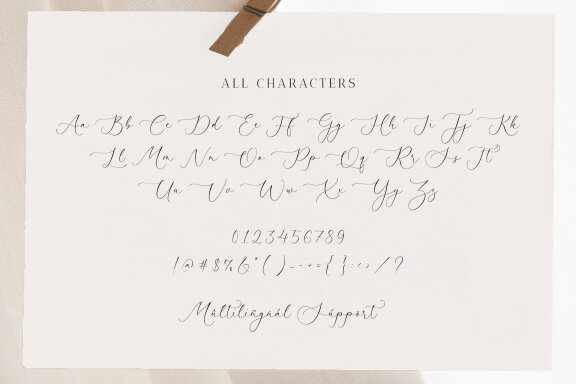 ALL CHARACTERS
Aa Bb Cc Dd Ee Ff Gg Hh Ii Jj Kk
Ll Mm Nn Oo Pp Qq Rr Ss Tt
Uu Vv Ww Xx Yy Zz
0123456789
!@#$%&*()_-+={}:;<>/?
Múltilingúál Súpport